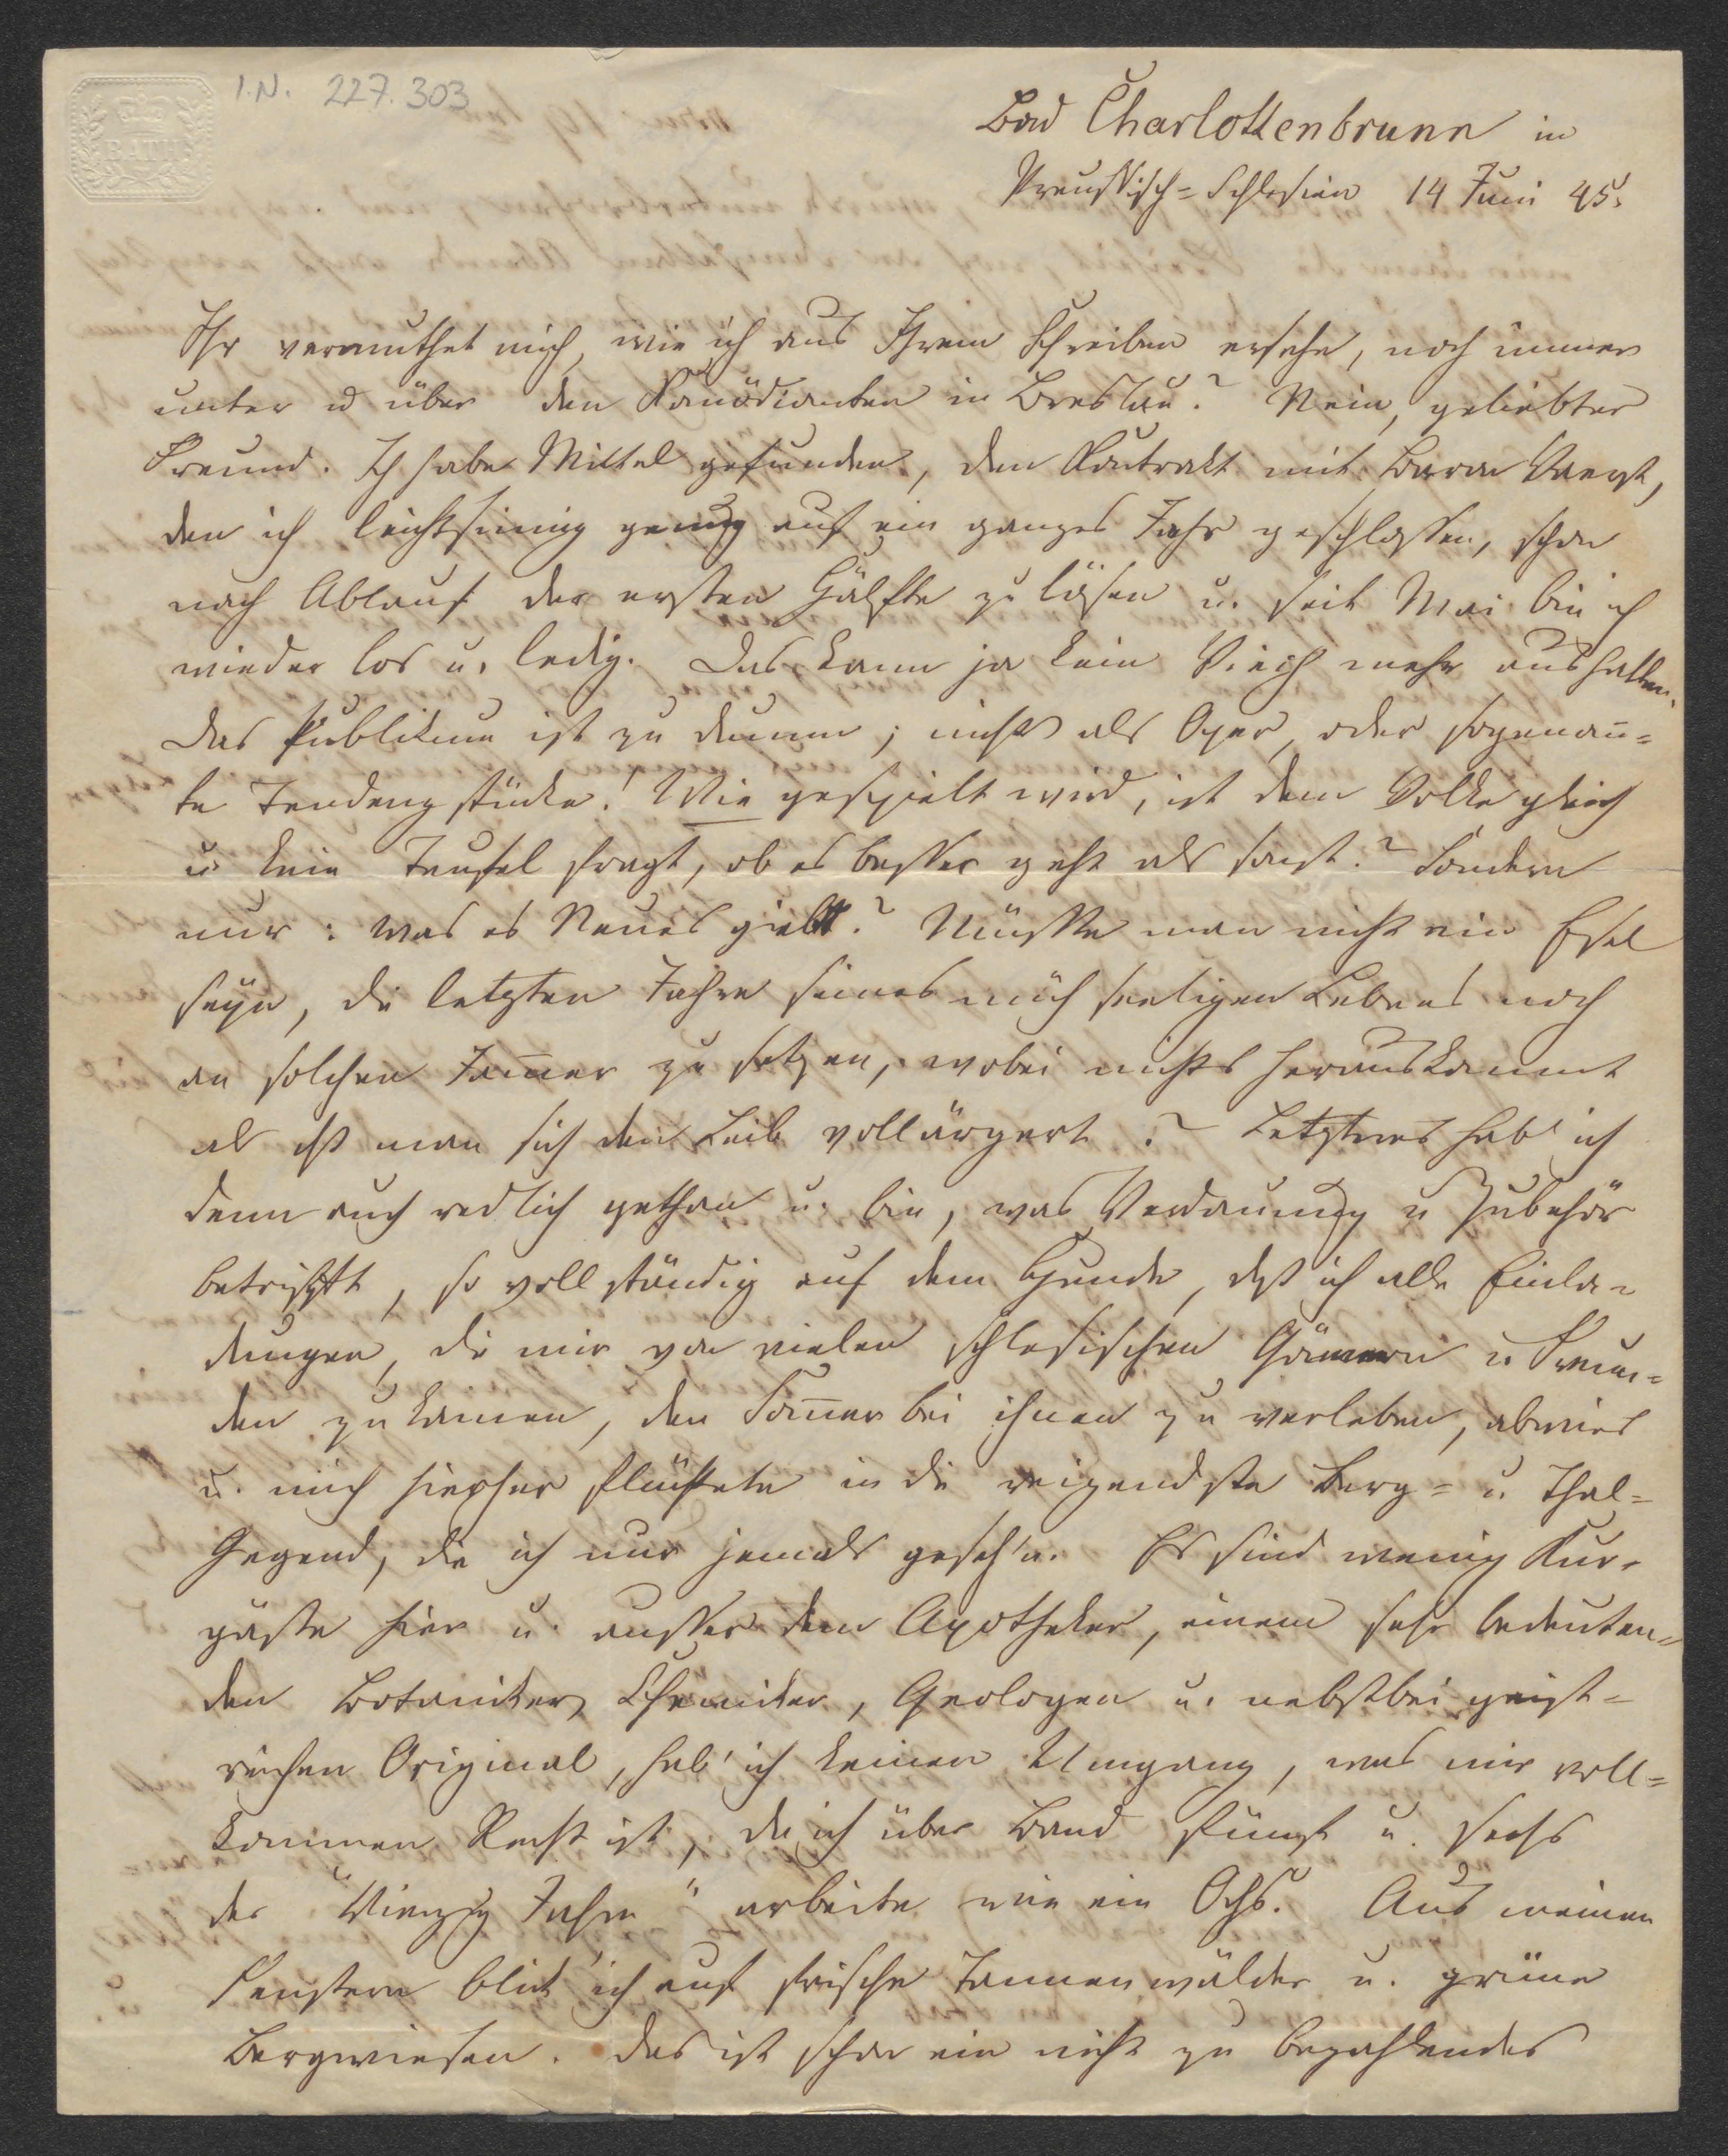 I.N. 227.303
BATH
Bad Charlottenbrunn in
Preussisch=Schlesien 14 Juni 45.
Ihr vermuthet mich, wie ich aus Ihrem Schreiben ersehe, noch immer
unter u über den Komödianten in Breslau? Nein, geliebter
Freund. Ich habe Mittel gefunden, den Kontrakt mit Baron Vaerst,
den ich leichtsinnig genug auf ein ganzes Jahr geschlossen, schon
nach Ablauf der ersten Hälfte zu lösen u. seit Mai bin ich
wieder los u. ledig. Das kann ja kein Viech mehr aushalten.
Das Publikum ist zu dumm; nichts als Oper, oder sogenan̄=
te Tendenzstücke! Wie gespielt wird, ist dem Volke gleich
u. kein Teufel fragt, ob es besser geht als sonst? Sondern
nur: was es Neues giebt? Müsste man nicht ein Esel
seyn, die letzten Jahre seines mühseeligen Lebens noch
an solchen Jam̄er zu setzen, wobei nichts herauskommt
als dß man sich den Leib vollärgert? Letzteres hab' ich
denn auch redlich gethan u. bin, was Verdauung u Zubehör
betrifft, so vollständig auf dem Hunde, dß ich alle Einla=
dungen, die mir von vielen schlesischen Gönnern u Freun=
den zukamen, den Som̄er bei ihnen zu verleben, abwies
u. mich hierher flüchtete in die reizendste Berg= u. Thal=
Gegend, die ich nur jemals geseh'n. Es sind wenig Kur=
gäste hier u. ausser dem Apotheker, einem sehr bedeuten=
den Botaniker, Chemiker, Geologen u. nebstbei geist=
reichen Original, hab' ich keinen Umgang, was mir voll=
kommen Recht ist, da ich über Band fünf u. sechs
der "Vierzig Jahre" arbeite wie ein Ochs. Aus meinen
Fenstern blick' ich auf frische Tannenwälder u. grüne
Bergwiesen. Das ist schon ein nicht zu bezahlendes